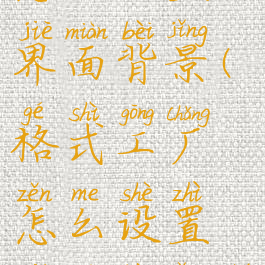 jiè miàn bèi jǐng
界面背景(
gé shì gōng chǎng
格式工厂
zěn me shè zhì
怎么设置